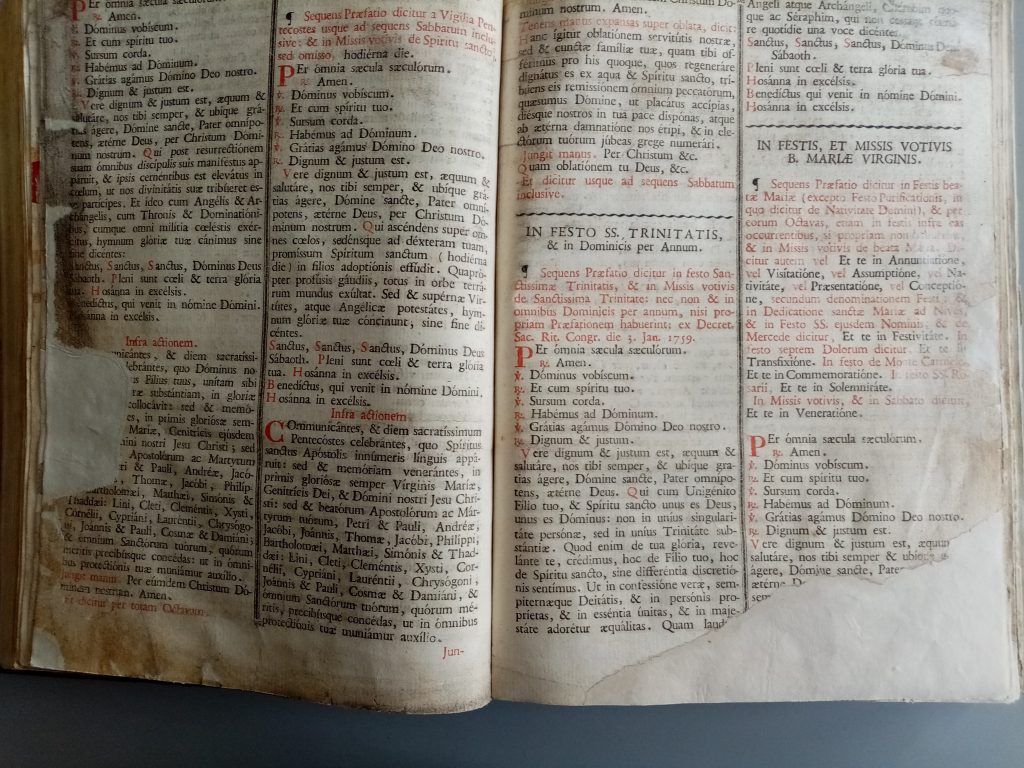 PEr ómnia sæcula sæculórum.
℟. Amen.
℣. Dóminus vobíscum.
℟. Et cum spíritu tuo.
℣. Sursum corda.
℟. Habémus ad Dóminum.
℣. Grátias agámus Dómino Deo nostro.
℟. Dignum & justum est.
Vere dignum & justum est, æquum &
salutáre, nos tibi semper, & ubíque grá-
tias ágere, Dómine sancte, Pater omnípo-
tens, ætérne Deus, per Christum Dómi-
num nostrum. Qui post resurrectiónem
suam ómnibus discípulis suis maniféstus ap-
páruit, & ipsis cernéntibus est elevátus in
cœlum, ut nos divinitátis suæ tribúeret es-
se partícipes. Et ídeo cum Angélis & Ar-
chángelis, cum Thronis & Dominatióni-
bus, cumque omni milítia cœléstis exér-
citus, hymnum glóriæ tuæ cánimus sine
fine dicéntes:
Sanctus, Sanctus, Sanctus, Dóminus Deus
Sábaoth. Pleni sunt cœli & terra glória
tua. Hosánna in excélsis.
Benedíctus, qui venit in nómine Dómini.
Hosánna in excélsis.
Infra actionem.
nicántes, & diem sacratíssi-
lebrántes, quo Dóminus no-
s Fílius tuus, unítam sibi
substántiam, in glóriæ
ollocávit: sed & memó-
es, in primis gloriósæ sem-
Maríæ, Genitrícis ejúsdem
ini nostri Jesu Christi; sed
Apostolórum ac Mártyrum
i & Pauli, Andréæ, Jacó-
, Thomæ, Jacóbi, Philíp-
artholomæi, Matthæi, Simónis &
Thaddæi: Lini, Cleti, Cleméntis, Xysti,
Cornélii, Cypriáni, Lauréntii, Chrysógo-
ni, Joánnis & Pauli, Cosmæ & Damiáni;
& ómnium Sanctórum tuórum, quórum
méritis precibúsque concédas: ut in ómni-
bus protectiónis tuæ muniámur auxílio.
Jungit manus. Per eúmdem Christum Dó-
minum nostrum. Amen.
Et dicitur per totam Octavam.
¶ Sequens Præfatio dicitur a Vigilia Pen-
tecostes usque ad sequens Sabbatum inclu-
sive: & in Missis votivis de Spiritu sancto,
sed omisso, hodiérna die.
PEr ómnia sæcula sæculórum.
℟. Amen.
℣. Dóminus vobíscum.
℟. Et cum spíritu tuo.
℣. Sursum corda.
℟. Habémus ad Dóminum.
℣. Grátias agámus Dómino Deo nostro.
℟. Dignum & justum est.
Vere dignum & justum est, æquum &
salutáre, nos tibi semper, & ubíque grá-
tias ágere, Dómine sancte, Pater omní-
potens, ætérne Deus, per Christum Dó-
minum nostrum. Qui ascéndens super om-
nes cœlos, sedénsque ad déxteram tuam,
promíssum Spíritum sanctum (hodiérna
die) in fílios adoptiónis effúdit. Quaprό-
pter profúsis gáudiis, totus in orbe terrá-
rum mundus exúltat. Sed & supérnæ Vir-
tútes, atque Angélicæ potestátes, hym-
num glóriæ tuæ cóncinunt, sine fine di-
céntes.
Sanctus, Sanctus, Sanctus, Dóminus Deus
Sábaoth. Pleni sunt cœli & terra glória
tua. Hosánna in excélsis.
Benedíctus, qui venit in nómine Dómini.
Hosánna in excélsis.
Infra actionem.
COmmunicántes, & diem sacratíssimum
Pentecóstes celebrántes, quo Spíritus
sanctus Apóstolis innúmeris linguis appá-
ruit: sed & memóriam venerántes, in
primis gloriósæ semper Vírginis Maríæ,
Genitrícis Dei, & Dómini nostri Jesu Chri-
sti: sed & beatórum Apostolórum ac Már-
tyrum tuórum, Petri & Pauli, Andréæ,
Jacóbi, Joánnis, Thomæ, Jacóbi, Philíppi,
Bartholomæi, Matthæi, Simónis & Thad-
dæi: Lini, Cleti, Cleméntis, Xysti, Cor-
nélii, Cypriáni, Lauréntii, Chrysógoni,
Joánnis & Pauli, Cosmæ & Damiáni, &
ómnium Sanctórum tuórum, quórum mé-
ritis, precibúsque concédas, ut in ómnibus
protectiónis tuæ muniámur auxílio.
Jun-
minum nostrum. Amen.
Tenens manus expansas super oblata, dicit:
Hanc ígitur oblatiónem servitútis nostræ,
sed & cunctæ famíliæ tuæ, quam tibi of-
férimus pro his quoque, quos regeneráre
dignátus es ex aqua & Spíritu sancto, trí-
buens eis remissiónem ómnium peccatórum,
quæsumus Dómine, ut placátus accípias,
diésque nostros in tua pace dispónas, atque
ab ætérna damnatióne nos éripi, & in ele-
ctórum tuórum júbeas grege numerári.
Jungit manus. Per Christum &c.
Quam oblatiónem tu Deus, &c.
Et dicitur usque ad sequens Sabbatum
inclusive.
IN FESTO SS. TRINITATIS,
& in Dominicis per Annum.
¶ Sequens Præfatio dicitur in festo San-
ctissimæ Trinitatis, & in Missis votivis
de Sanctissima Trinitate: nec non & in
omnibus Dominicis per annum, nisi pro-
priam Præfationem habuerint; ex Decret.
Sac. Rit. Congr. die 3. Jan. 1759.
PEr ómnia sæcula sæculórum.
℟. Amen.
℣. Dóminus vobíscum.
℟. Et cum spíritu tuo.
℣. Sursum corda.
℟. Habémus ad Dóminum.
℣. Grátias agámus Dómino Deo nostro.
℟. Dignum & justum.
Vere dignum & justum est, æquum &
salutáre, nos tibi semper, & ubíque grá-
tias ágere, Dómine sancte, Pater omnípo-
tens, ætérne Deus. Qui cum Unigénito
Fílio tuo, & Spíritu sancto unus es Deus,
unus es Dóminus: non in uníus singulari-
táte persónæ, sed in uníus Trinitáte sub-
stántiæ. Quod enim de tua glória, reve-
lánte te, crédimus, hoc de Fílio tuo, hoc
de Spíritu sancto, sine differéntia discretió-
nis sentímus. Ut in confessióne veræ, sem-
piternǽque Deitátis, & in persónis pro-
príetas, & in esséntia únitas, & in maje-
státe adorétur æquálitas. Quam laud
Angeli atque Archángeli, Chérubim quo-
que ac Séraphim, qui non cessant clamá-
re quotídie una voce dicéntes.
Sanctus, Sanctus, Sanctus, Dóminus Deus
Sábaoth.
Pleni sunt cœli & terra glória tua.
Hosánna in excélsis.
Benedíctus qui venit in nómine Dómini.
Hosánna in excélsis.
IN FESTIS, ET MISSIS VOTIVIS
B. MARIÆ VIRGINIS.
¶ Sequens Præfatio dicitur in Festis bea-
tæ Mariæ (excepto Festo Purificationis, in
quo dicitur de Nativitate Domini), & per
eorum Octavas, etiam in festis infra eas
occurrentibus, si propriam non habuerint,
& in Missis votivis de beata Maria. Di-
citur autem vel Et te in Annuntiatióne,
vel Visitatióne, vel Assumptióne, vel Na-
tivitáte, vel Præsentatióne, vel Conceptió-
ne, secundum denominationem Festi: &
in Dedicatione sanctæ Mariæ ad Nives,
& in Festo SS. ejusdem Nominis, & de
Mercede dicitur, Et te in Festivitáte. In
festo septem Dolorum dicitur, Et te in
Transfixióne. In festo de Monte Carmelo,
Et te in Commemoratióne. In festo SS. Ro-
sarii, Et te in Solemnitáte.
In Missis votivis, & in Sabbato dicitur,
Et te in Veneratióne.
PEr ómnia sæcula sæculórum.
℟. Amen.
℣. Dóminus vobíscum.
℟. Et cum spíritu tuo.
℣. Sursum corda.
℟. Habémus ad Dóminum.
℣. Grátias agámus Dómino Deo nostro.
℟. Dignum & justum est.
Vere dignum & justum est, æquum
salutáre, nos tibi semper & ubíque
ágere, Dómine sancte, Pater
ætérne D
sem